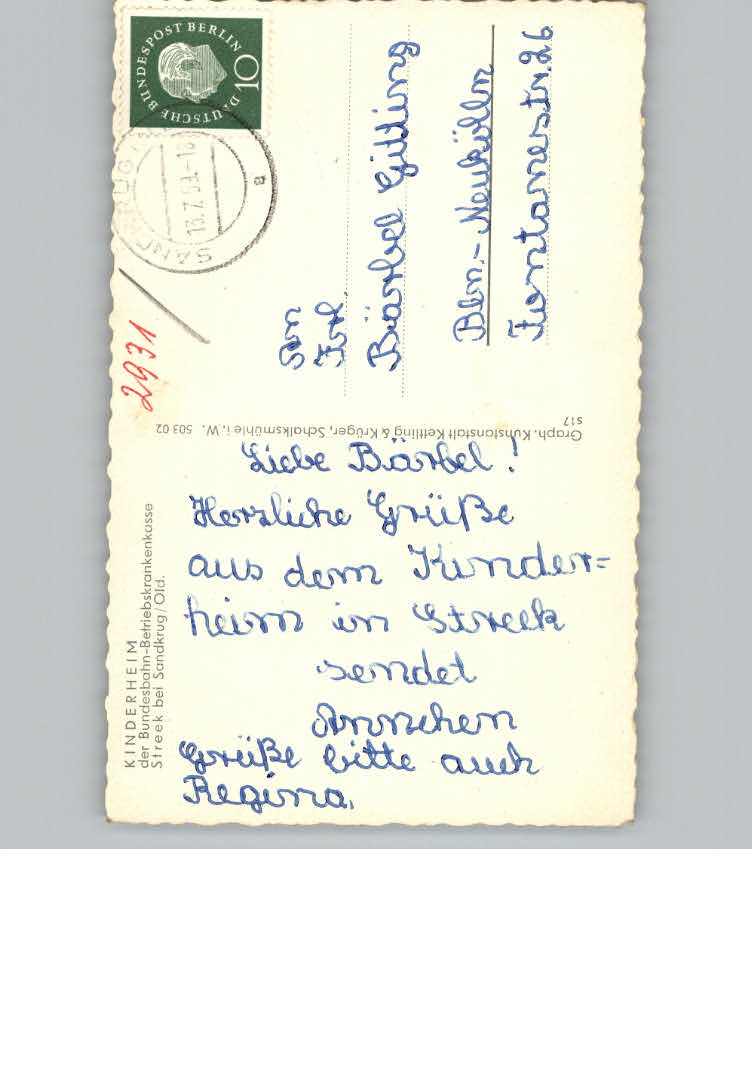 KINDERHEIM
der Bundesbahn-Betriebskrankenkasse
Streek bei Sandkrug/Old.
Liebe Bärbel!
Herzliche Grüße
aus dem Kinder=
heim in Streek
sendet
Annchen
Grüße bitte auch
Regina.
Graph. Kunstanstalt Kettling & Krüger, Schalksmühle i. W. 503 02
S17
2931
DEUTSCHE BUNDESPOST BERLIN
10
SANDKRUG
13.7.59.-18
a
An
Frl.
Bärbel Gitting
Bln.-Neukölln
Fontanestr. 26